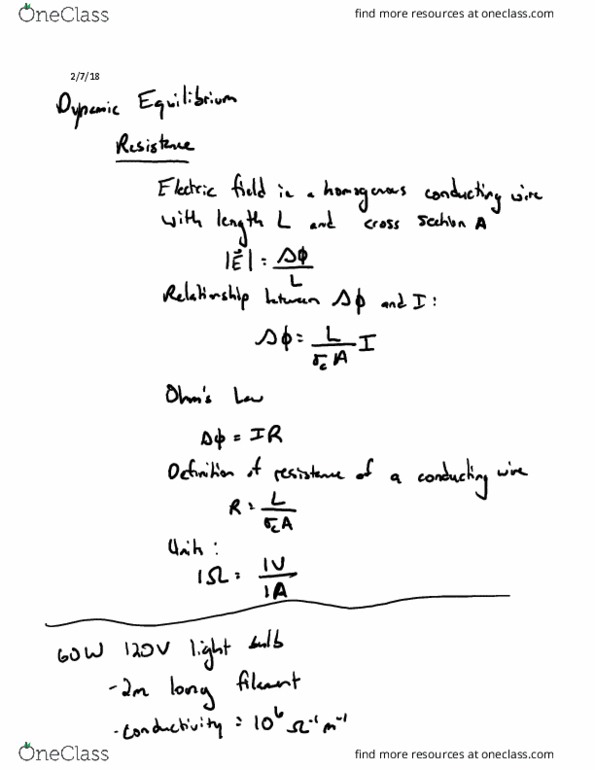 OneClass
find more resources at oneclass.com
2/7/18
Dynamic Equilibrium
Resistance
Electric field in a homogenous conducting wire
with length L and cross section A
|E⃗| = Δϕ/L
Relationship between Δϕ and I:
Δϕ = L/(σ_c A) I
Ohm's Law
Δϕ = IR
Definition of resistance of a conducting wire
R = L/(σ_c A)
Units:
1Ω = 1V/1A
60W 120V light bulb
-2m long filament
-conductivity = 10⁶ Ω⁻¹m⁻¹
OneClass
find more resources at oneclass.com